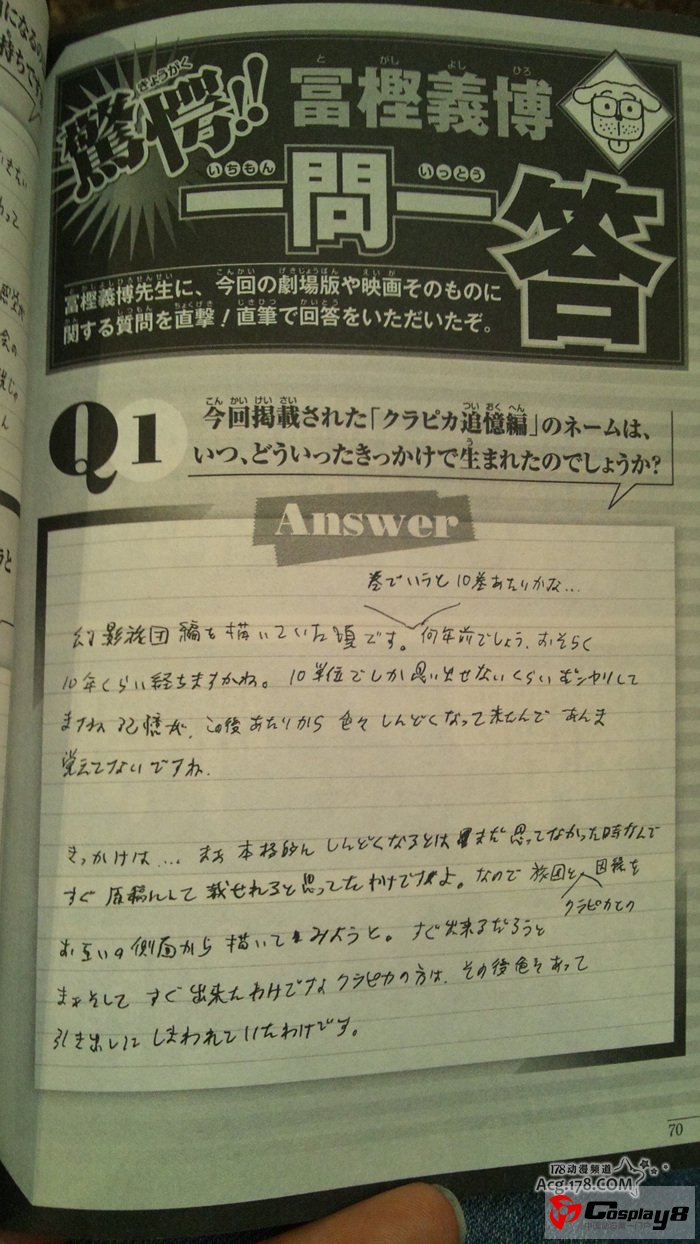 驚愕!!
きょうがく
冨樫義博
とがしよしひろ
一問一答
いちもんいっとう
冨樫義博先生に、今回の劇場版や映画そのものに
関する質問を直撃!直筆で回答をいただいたぞ。
Q1
今回掲載された「クラピカ追憶編」のネームは、
いつ、どういったきっかけで生まれたのでしょうか?
Answer
巻でいうと10巻あたりかな…
幻影旅団編を描いていた頃です。何年前でしょう、おそらく
10年くらい経ちますかね。10単位でしか思い出せないくらいボンヤリして
ますね記憶が、この後あたりから色々しんどくなって来たんであんま
覚えてないですね、
きっかけは…まあ本格的にしんどくなるとはまだ思ってなかった時なんで
すぐ原稿にして載せれると思ってたわけですよ。なので旅団と因縁を
クラピカとの
お互いの側面から描いてみようと。すぐ出来るだろうと
まぁそしてすぐ出来たわけですな クラピカの方は、その後色々あって
引き出しにしまわれていたわけです。
70
178动漫频道
Acg.178.COM
Cosplay8
中国站第一门户